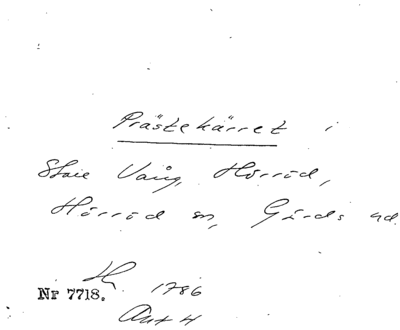 Prästekärret i
Stare Vång, Hörröd,
Hörröd sn, Gärds hd.
Nr 7718. 1786
Akt 4